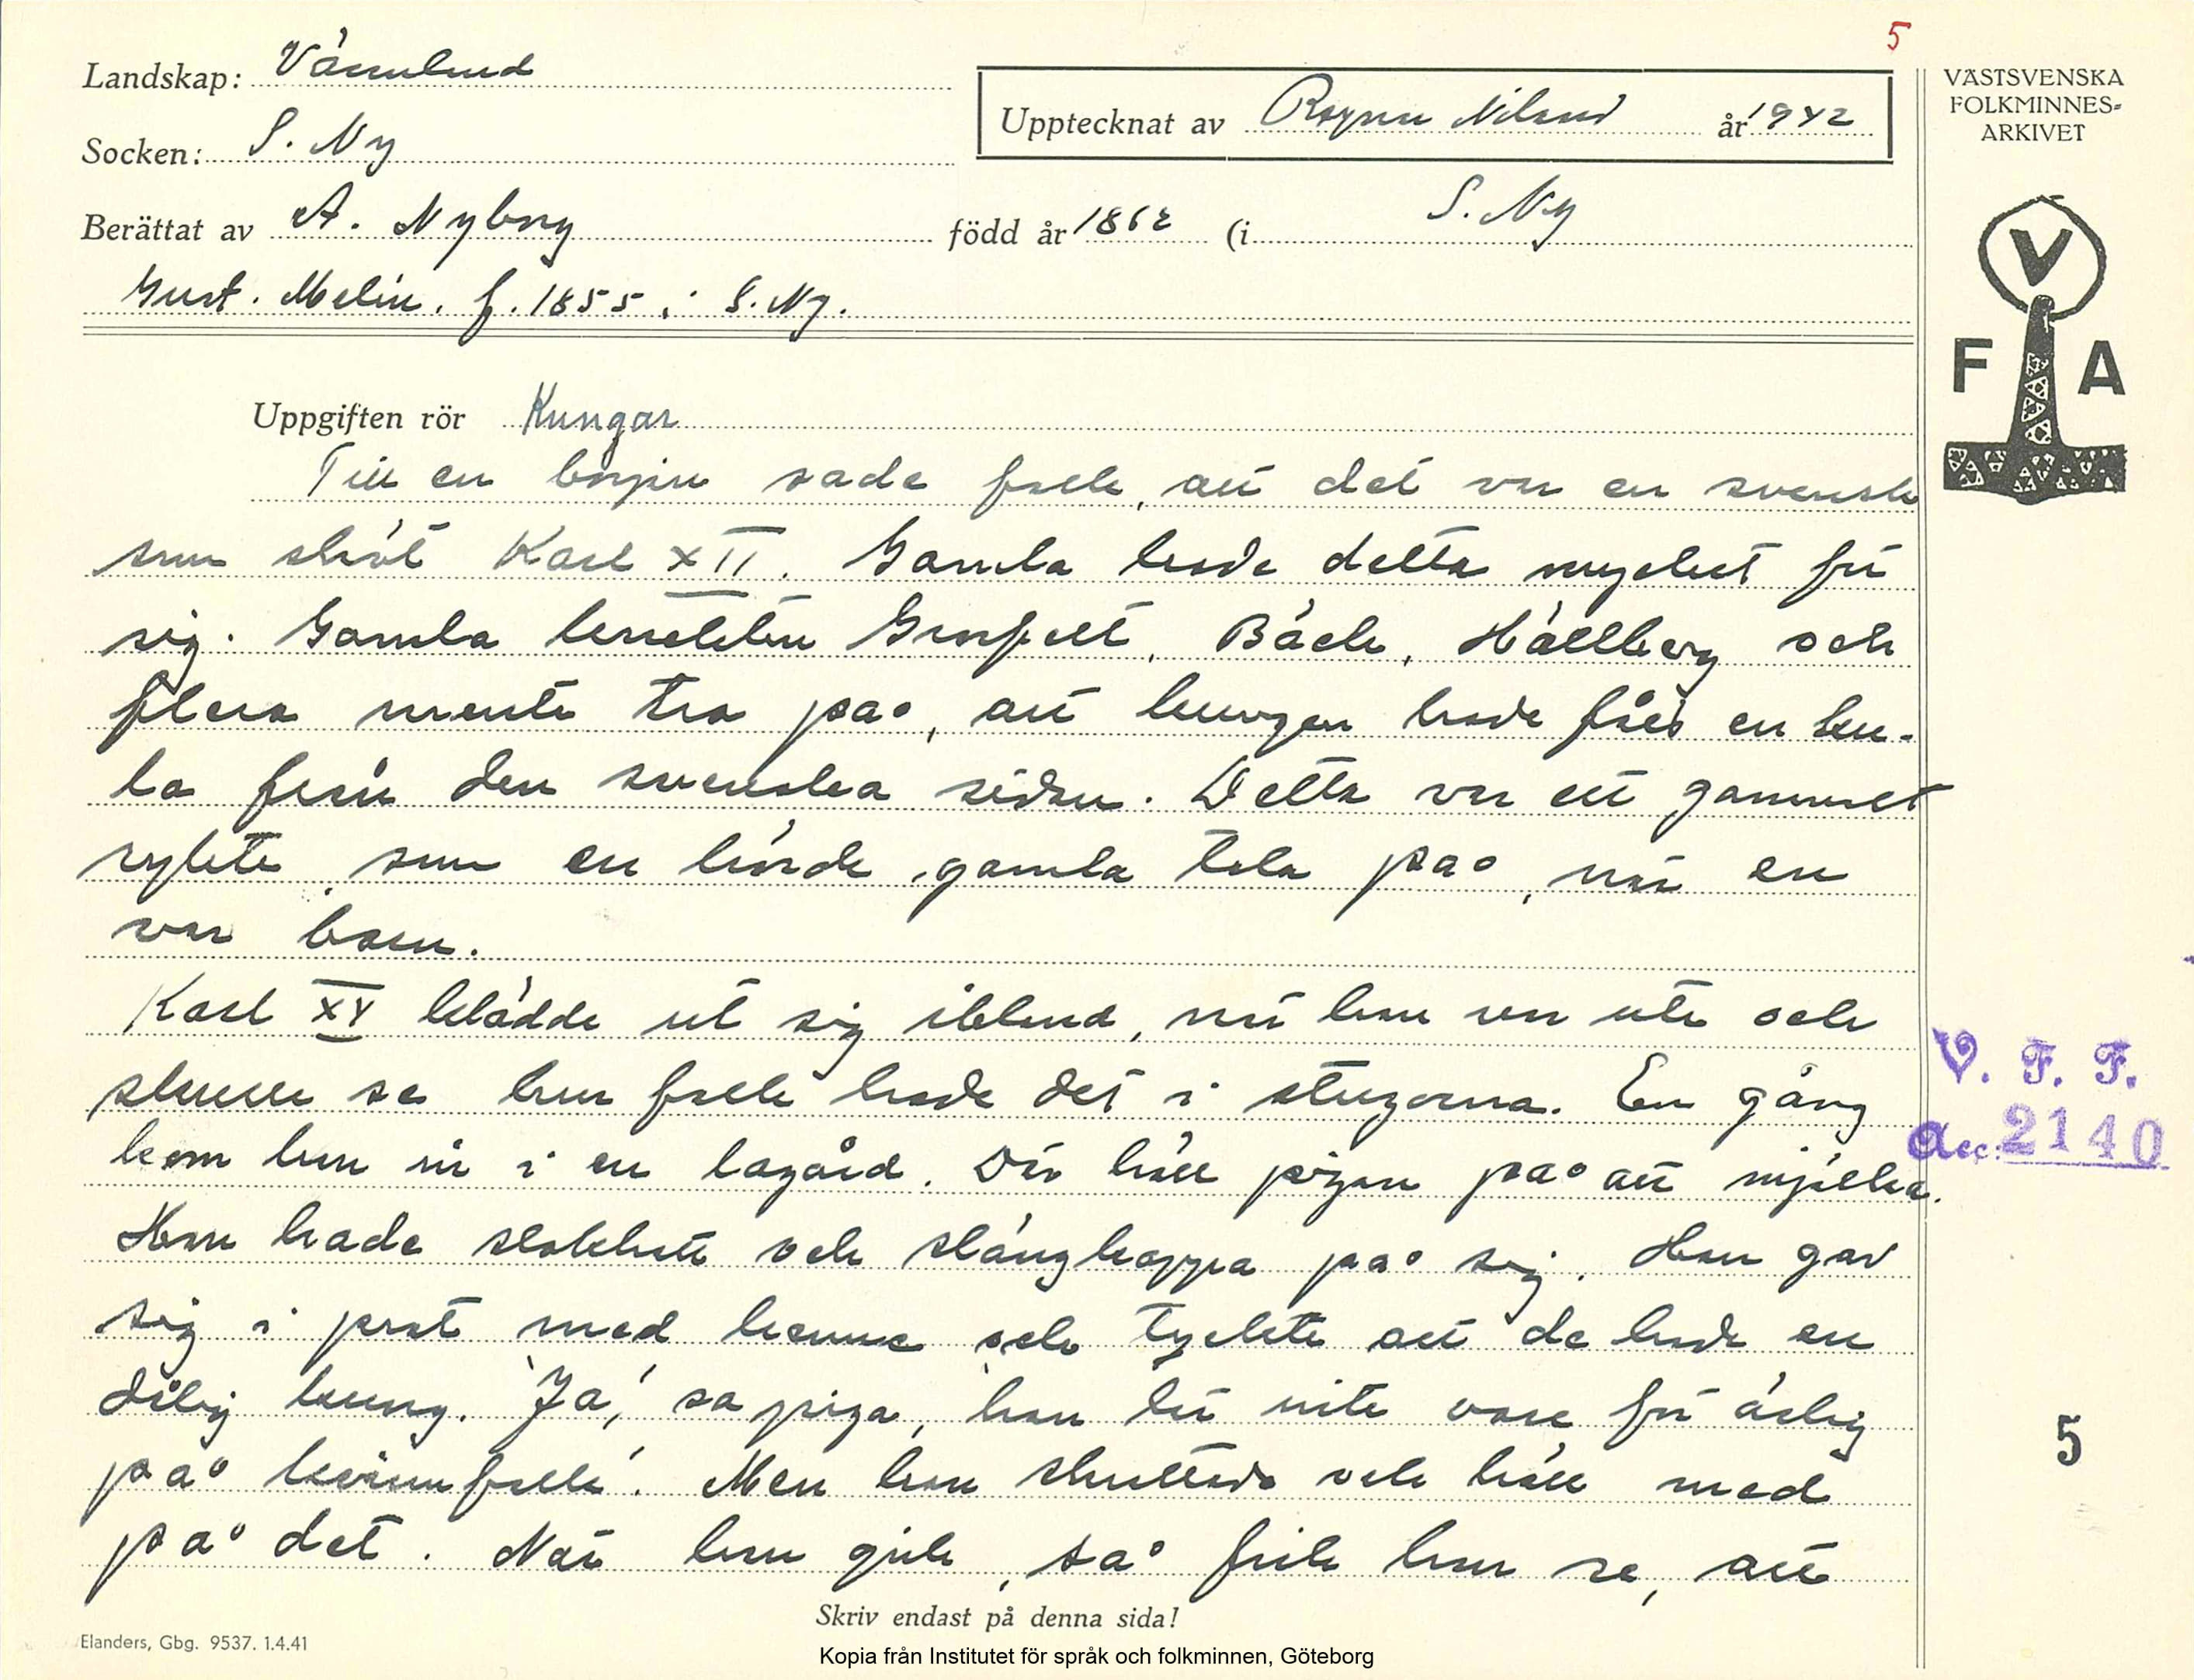 5
Landskap: Värmland
Socken: S. Ny
Upptecknat av Ragnar Nilsson år 1942
Berättat av A. Nyborg född år 1862 (i S. Ny
Gust. Melin. f. 1855 i S. Ny.
VÄSTSVENSKA
FOLKMINNES-
ARKIVET
V
F A
Uppgiften rör Kungar
Till en början sade folk, att det var en svensk
som sköt Karl XII. Gamla hade detta mycket för
sig. Gamla Bäck, Hällberg och
flera mente tro på, att kungen hade fått en ku-
la från den svenska sidan. Detta var ett gammet
rykte, som en hörde gamla tala på, när en
var barn.
Karl XV klädde ut sig ibland, när han var ute och
skulle se hur folk hade det i stugorna. En gång
kom han in i en lagård. Där höll pigan på att mjölka.
Han hade slokhatt och slängkappa på sig. Han gav
sig i prat med henne och tyckte att de hade en
dålig kung. 'Ja,' sa piga, 'han lär inte vara för ärlig
på kvinnfolk'. Men han skrattade och höll med
på det. När han gick, så fick hon se, att
V. F. F.
Acc. 2140
5
Skriv endast på denna sida!
Elanders, Gbg. 9537. 1.4.41
Kopia från Institutet för språk och folkminnen, Göteborg